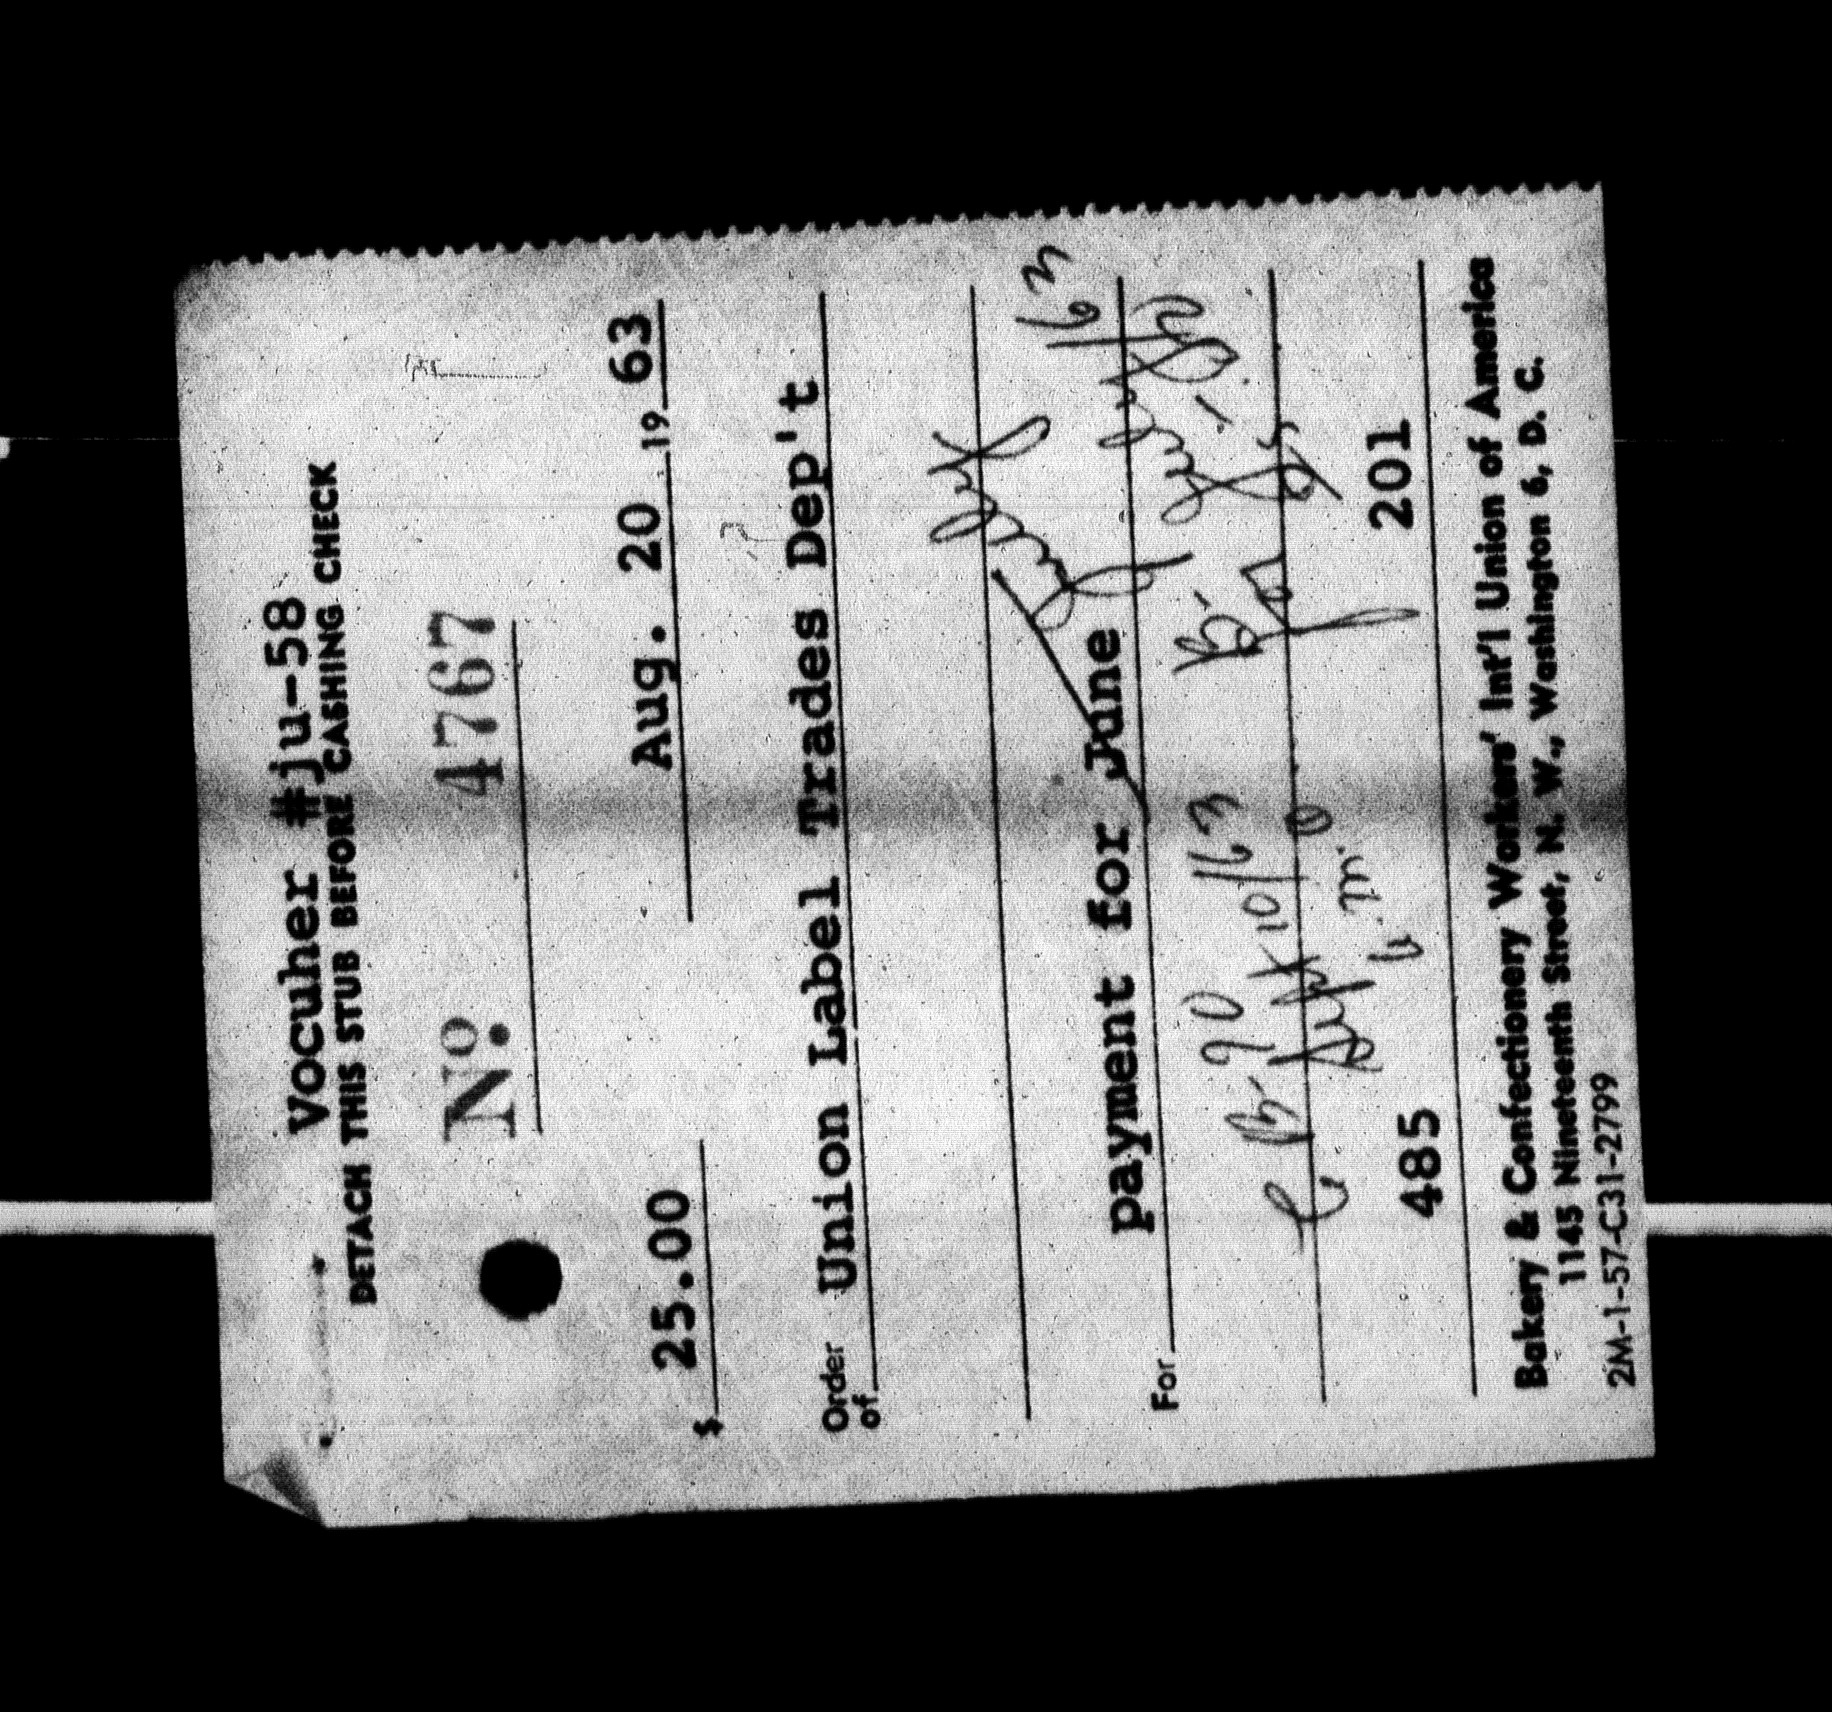 Vocuher #ju-58
DETACH THIS STUB BEFORE CASHING CHECK
No. 4767
$ 25.00 Aug. 20 1963
Order of Union Label Trades Dep't
For payment for June
B-90
10/63
485 201
Bakery & Confectionery Workers' Int'l Union of America
1145 Nineteenth Street, N. W., Washington 6, D. C.
2M-1-57-C31-2799